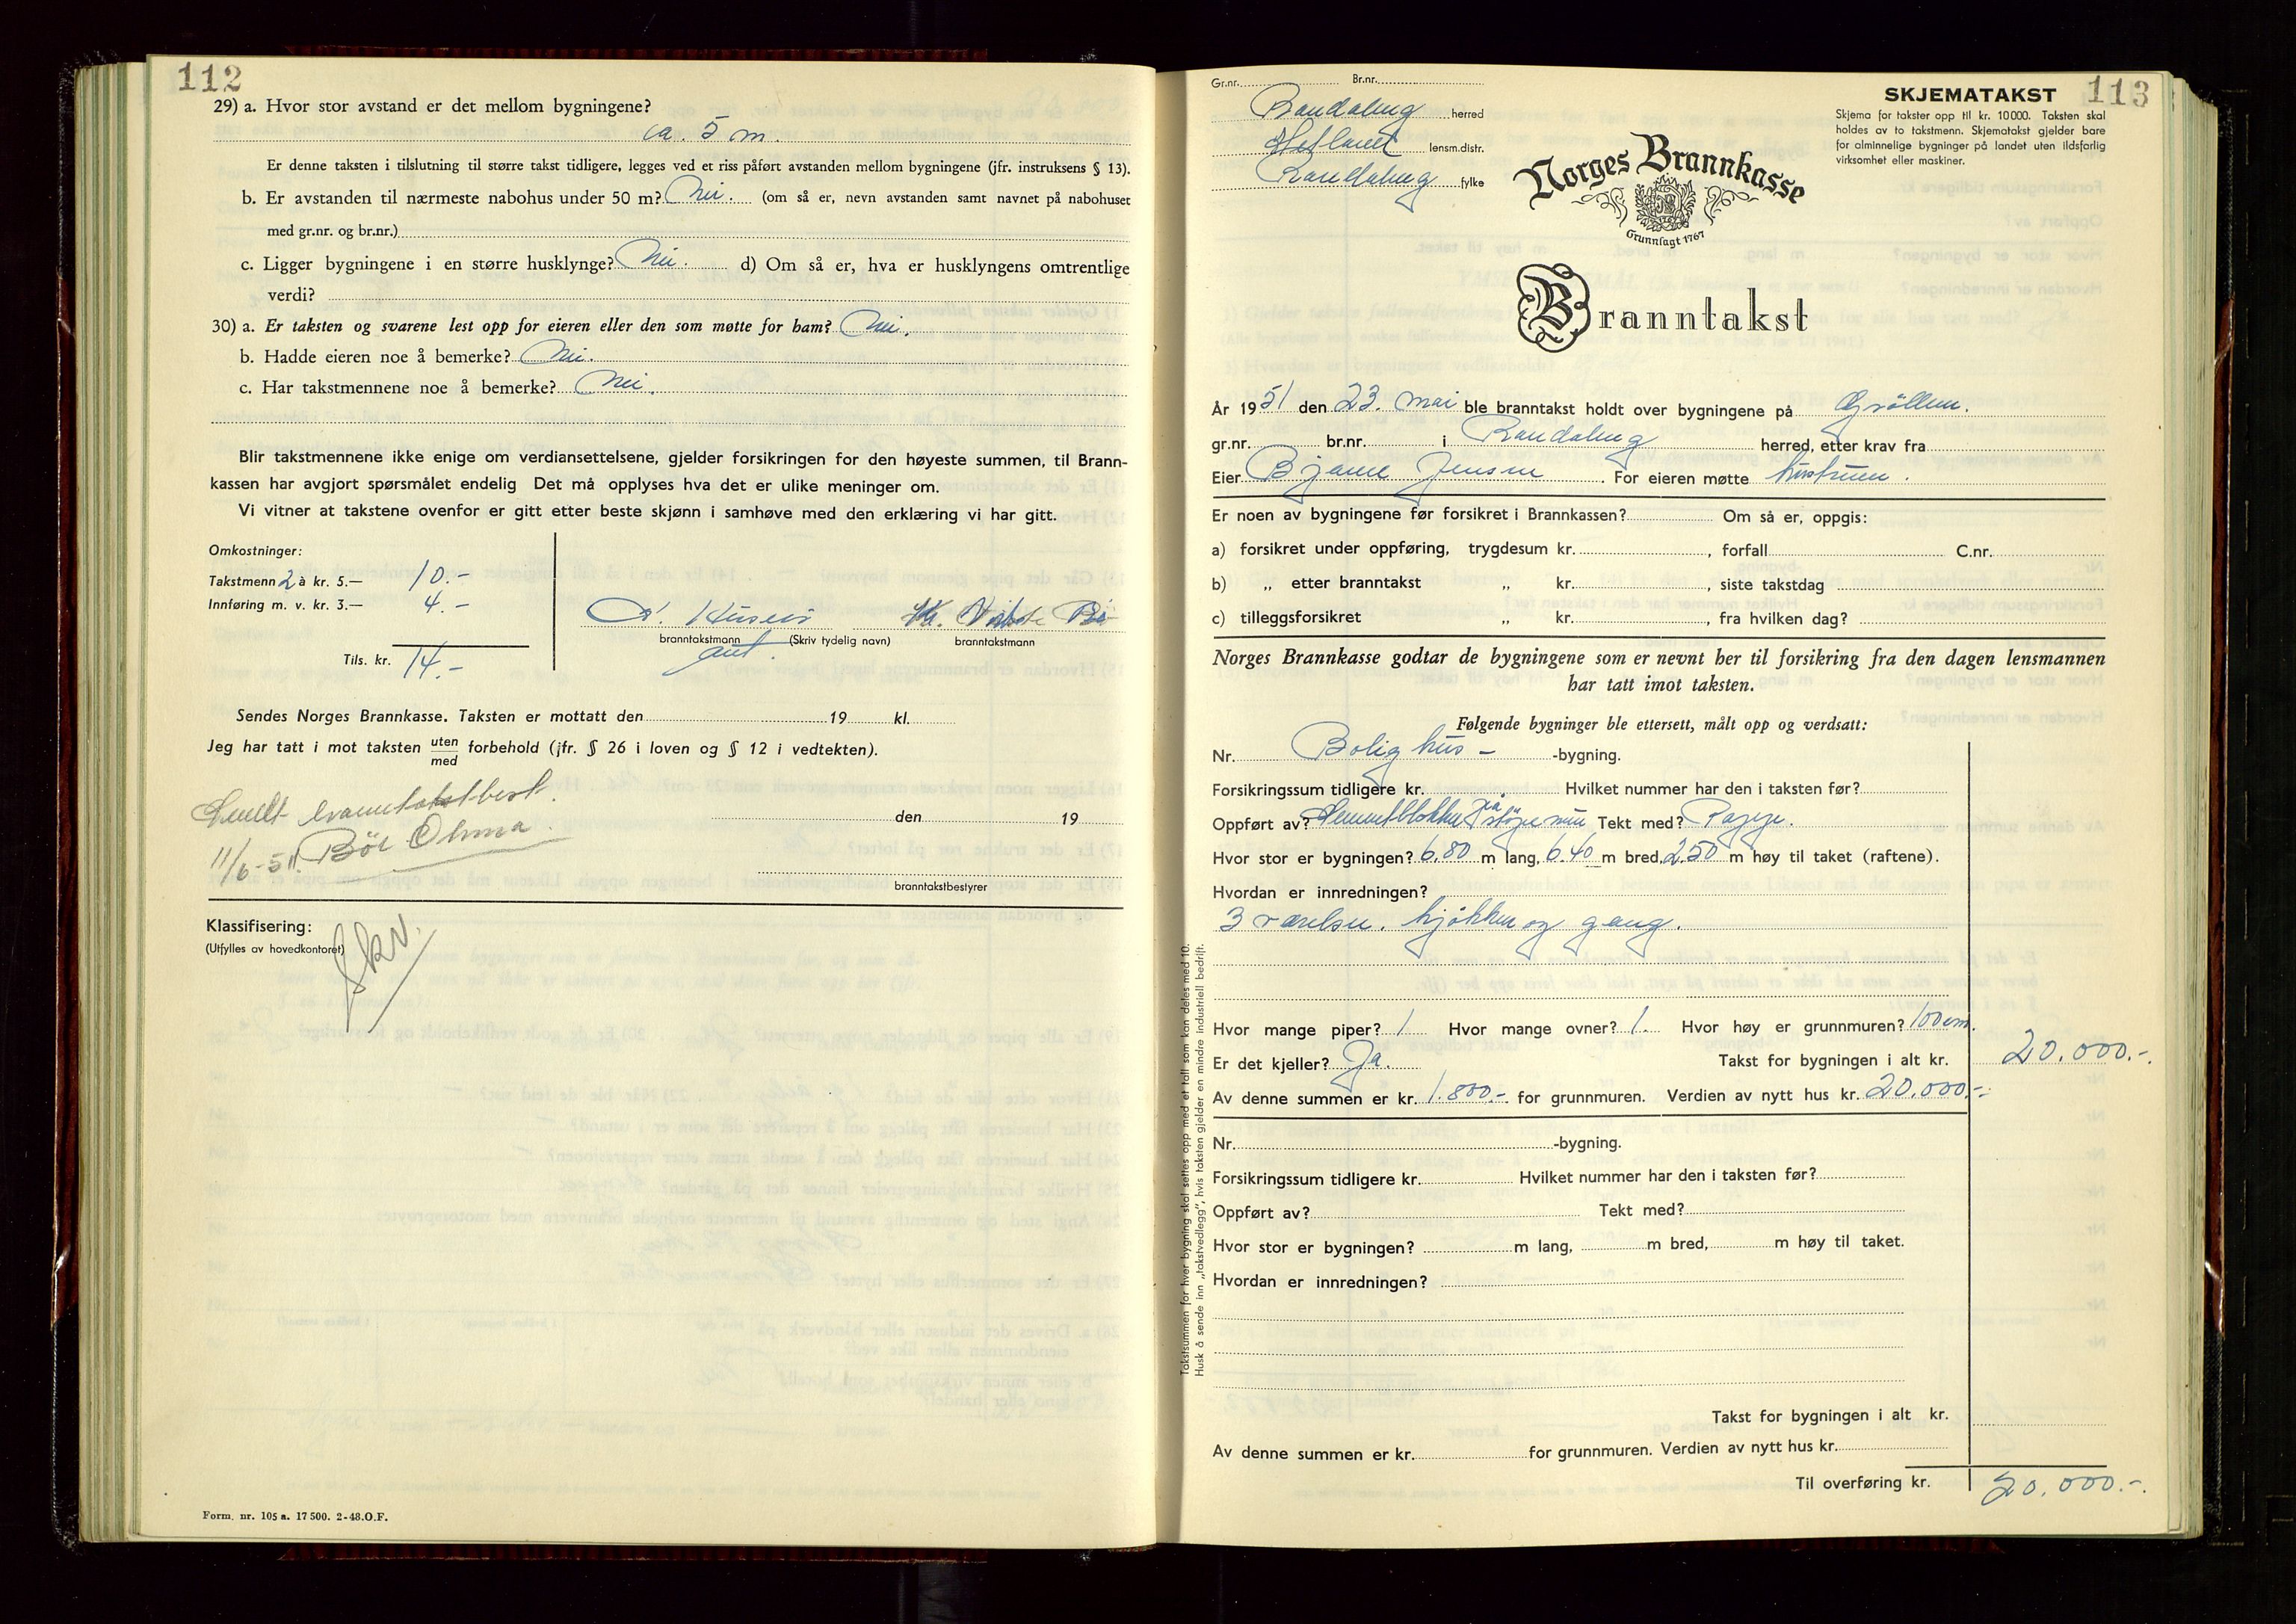 112
29) a. Hvor stor avstand er det mellom bygningene?
ca. 5 m.
Er denne taksten i tilslutning til større takst tidligere, legges ved et riss påført avstanden mellom bygningene (jfr. instruksens § 13).
b. Er avstanden til nærmeste nabohus under 50 m? Nei. (om så er, nevn avstanden samt navnet på nabohuset
med gr.nr. og br.nr.)
c. Ligger bygningene i en større husklynge? Nei. d) Om så er, hva er husklyngens omtrentlige
verdi?
30) a. Er taksten og svarene lest opp for eieren eller den som møtte for ham? Nei.
b. Hadde eieren noe å bemerke? Nei.
c. Har takstmennene noe å bemerke? Nei.
Blir takstmennene ikke enige om verdiansettelsene, gjelder forsikringen for den høyeste summen, til Brann-
kassen har avgjort spørsmålet endelig Det må opplyses hva det er ulike meninger om.
Vi vitner at takstene ovenfor er gitt etter beste skjønn i samhøve med den erklæring vi har gitt.
Omkostninger:
Takstmenn 2 à kr. 5.— 10.-
Innføring m. v. kr. 3.— 4.-
Tils. kr. 14.-
branntakstmann (Skriv tydelig navn) branntakstmann
Sendes Norges Brannkasse. Taksten er mottatt den 19 kl.
Jeg har tatt i mot taksten uten forbehold (jfr. § 26 i loven og § 12 i vedtekten).
med
Sendt branntakstbest.
11/6-51.
den 19
branntakstbestyrer
Klassifisering:
(Utfylles av hovedkontoret)
Form. nr. 105 a. 17 500. 2-48.O.F.
113
Gr.nr. Br.nr.
Randaberg herred
Hetland lensm.distr.
Randaberg fylke
SKJEMATAKST
Skjema for takster opp til kr. 10000. Taksten skal
holdes av to takstmenn. Skjematakst gjelder bare
for alminnelige bygninger på landet uten ildsfarlig
virksomhet eller maskiner.
Norges Brannkasse
Grunnlagt 1767
Branntakst
År 1951 den 23. mai ble branntakst holdt over bygningene på Grødem.
gr.nr. br.nr. i Randaberg herred, etter krav fra
Eier Bjarne Jensen. For eieren møtte hustruen.
Er noen av bygningene før forsikret i Brannkassen? Om så er, oppgis:
a) forsikret under oppføring, trygdesum kr. , forfall C.nr.
b) „ etter branntakst „ kr. , siste takstdag
c) tilleggsforsikret „ kr. , fra hvilken dag?
Norges Brannkasse godtar de bygningene som er nevnt her til forsikring fra den dagen lensmannen
har tatt imot taksten.
Følgende bygninger ble ettersett, målt opp og verdsatt:
Nr. Bolighus- -bygning.
Forsikringssum tidligere kr. Hvilket nummer har den i taksten før?
Oppført av? Sementblokker på støpe mur Tekt med? Papp.
Hvor stor er bygningen? 6.80 m lang, 6.40 m bred, 2.50 m høy til taket (raftene).
Hvordan er innredningen?
3 værelser. kjøkken og gang.
Hvor mange piper? 1 Hvor mange ovner? 1. Hvor høy er grunnmuren? 100 cm.
Er det kjeller? Ja. Takst for bygningen i alt kr. 20.000.-
Av denne summen er kr. 1.800.- for grunnmuren. Verdien av nytt hus kr. 20.000.-
Nr. -bygning.
Forsikringssum tidligere kr. Hvilket nummer har den i taksten før?
Oppført av? Tekt med?
Hvor stor er bygningen? m lang, m bred, m høy til taket.
Hvordan er innredningen?
Takst for bygningen i alt kr.
Av denne summen er kr. for grunnmuren. Verdien av nytt hus kr.
Til overføring kr. 20.000.-
Takstsummen for hver bygning skal settes opp med et tall som kan deles med 10.
Husk å sende inn „takstvedlegg", hvis taksten gjelder en mindre industriell bedrift.